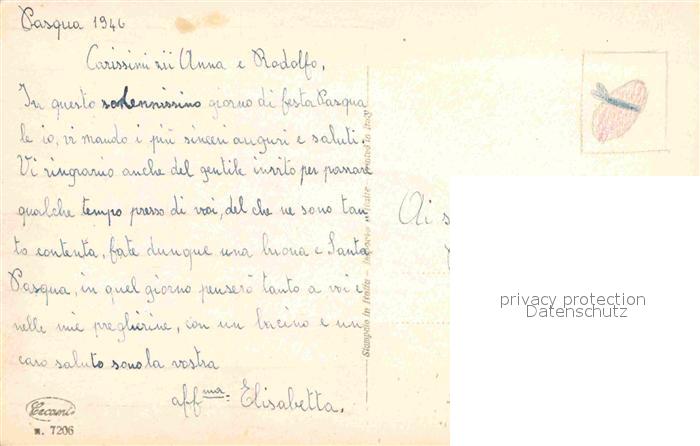 Pasqua 1946
Carissimi zii Anna e Rodolfo,
In questo solennissimo giorno di festa Pasqua
le io, vi mando i più sinceri auguri e saluti.
Vi ringrazio anche del gentile invito per passare
qualche tempo presso di voi, del che ne sono tan
to contenta, fate dunque una buona e Santa
Pasqua, in quel giorno penserò tanto a voi e
nelle mie preghierine, con un bacino e un
caro saluto sono la vostra
aff.ma: Elisabetta.
Cecami
N. 7206
Stampato in Italia - Imprimé en Italie - Printed in Italy
Ai s
privacy protection
Datenschutz